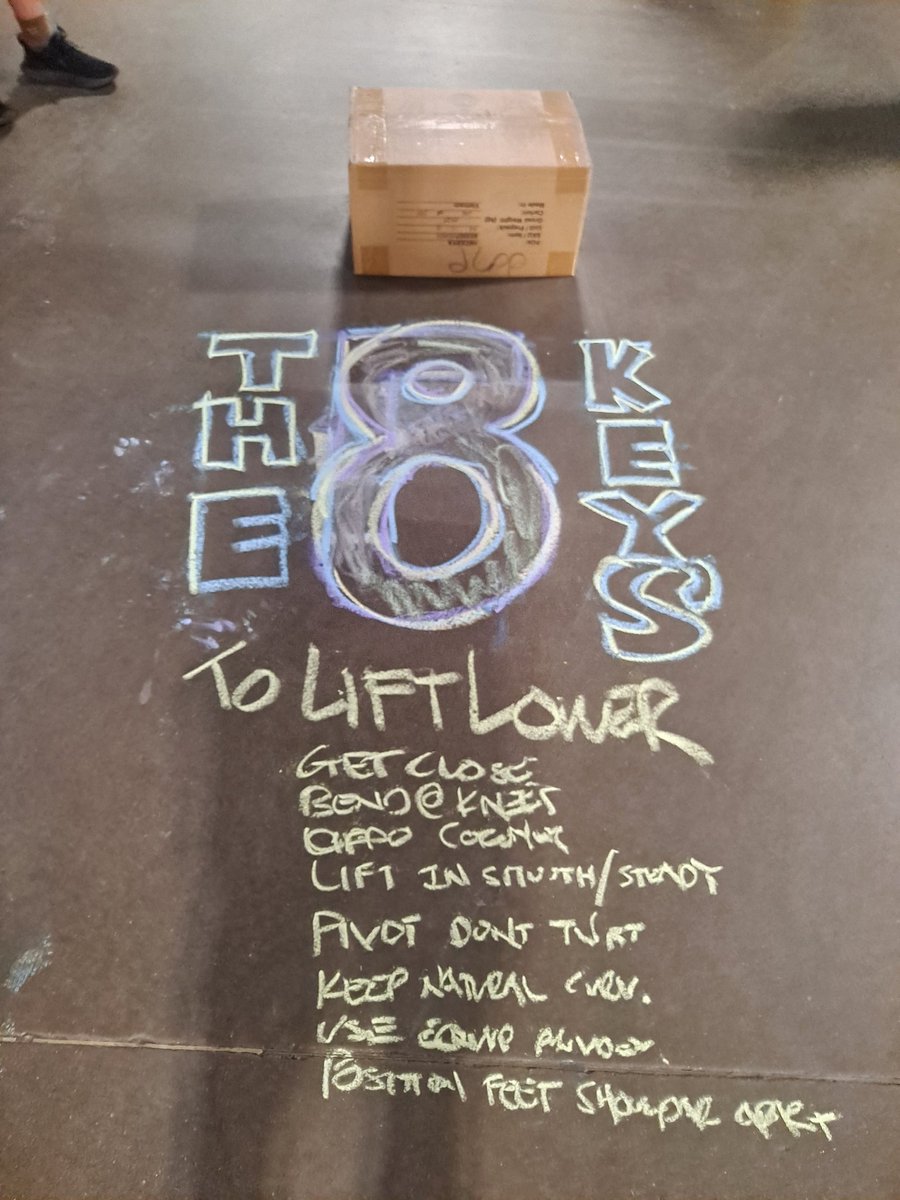 THE 8 KEYS
TO LIFT LOWER
GET CLOSE
BEND @ KNEES
LIFT IN SMOOTH/STEADY
PIVOT DONT
KEEP NATURAL CURV.
USE EQUIP
POSITION FEET SHOULDER APART